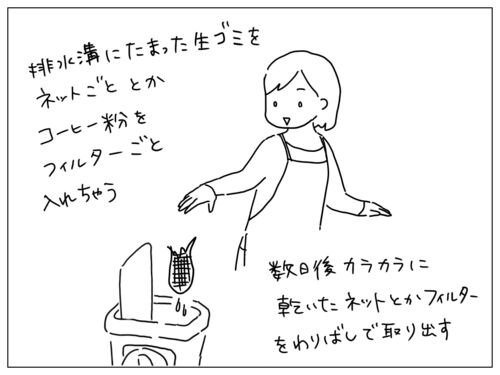 排水溝にたまった生ゴミを
ネットごと とか
コーヒー粉を
フィルターごと
入れちゃう
数日後カラカラに
乾いたネットとかフィルター
をわりばしで取り出す